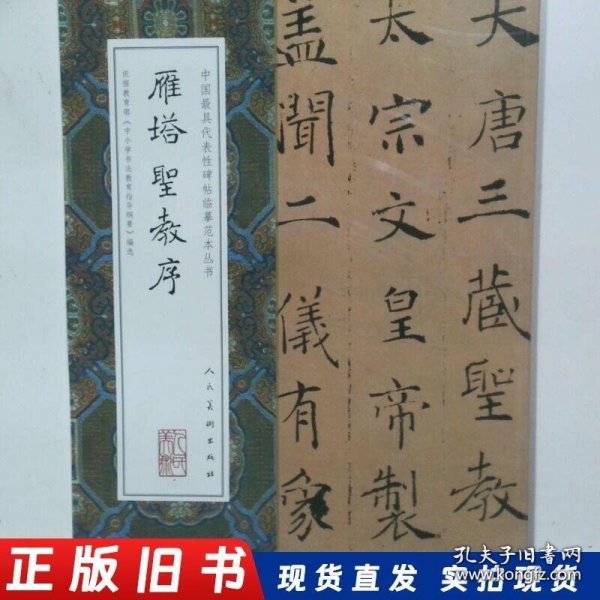 大唐三藏聖教
太宗文皇帝製
蓋聞二儀有象
中国最具代表性碑帖临摹范本丛书
雁塔聖教序
依据教育部《中小学书法教育指导纲要》编选
人民美術出版社
人民美術
正版旧书
现货直发 实拍现货
孔夫子旧书网
www.kongfz.com